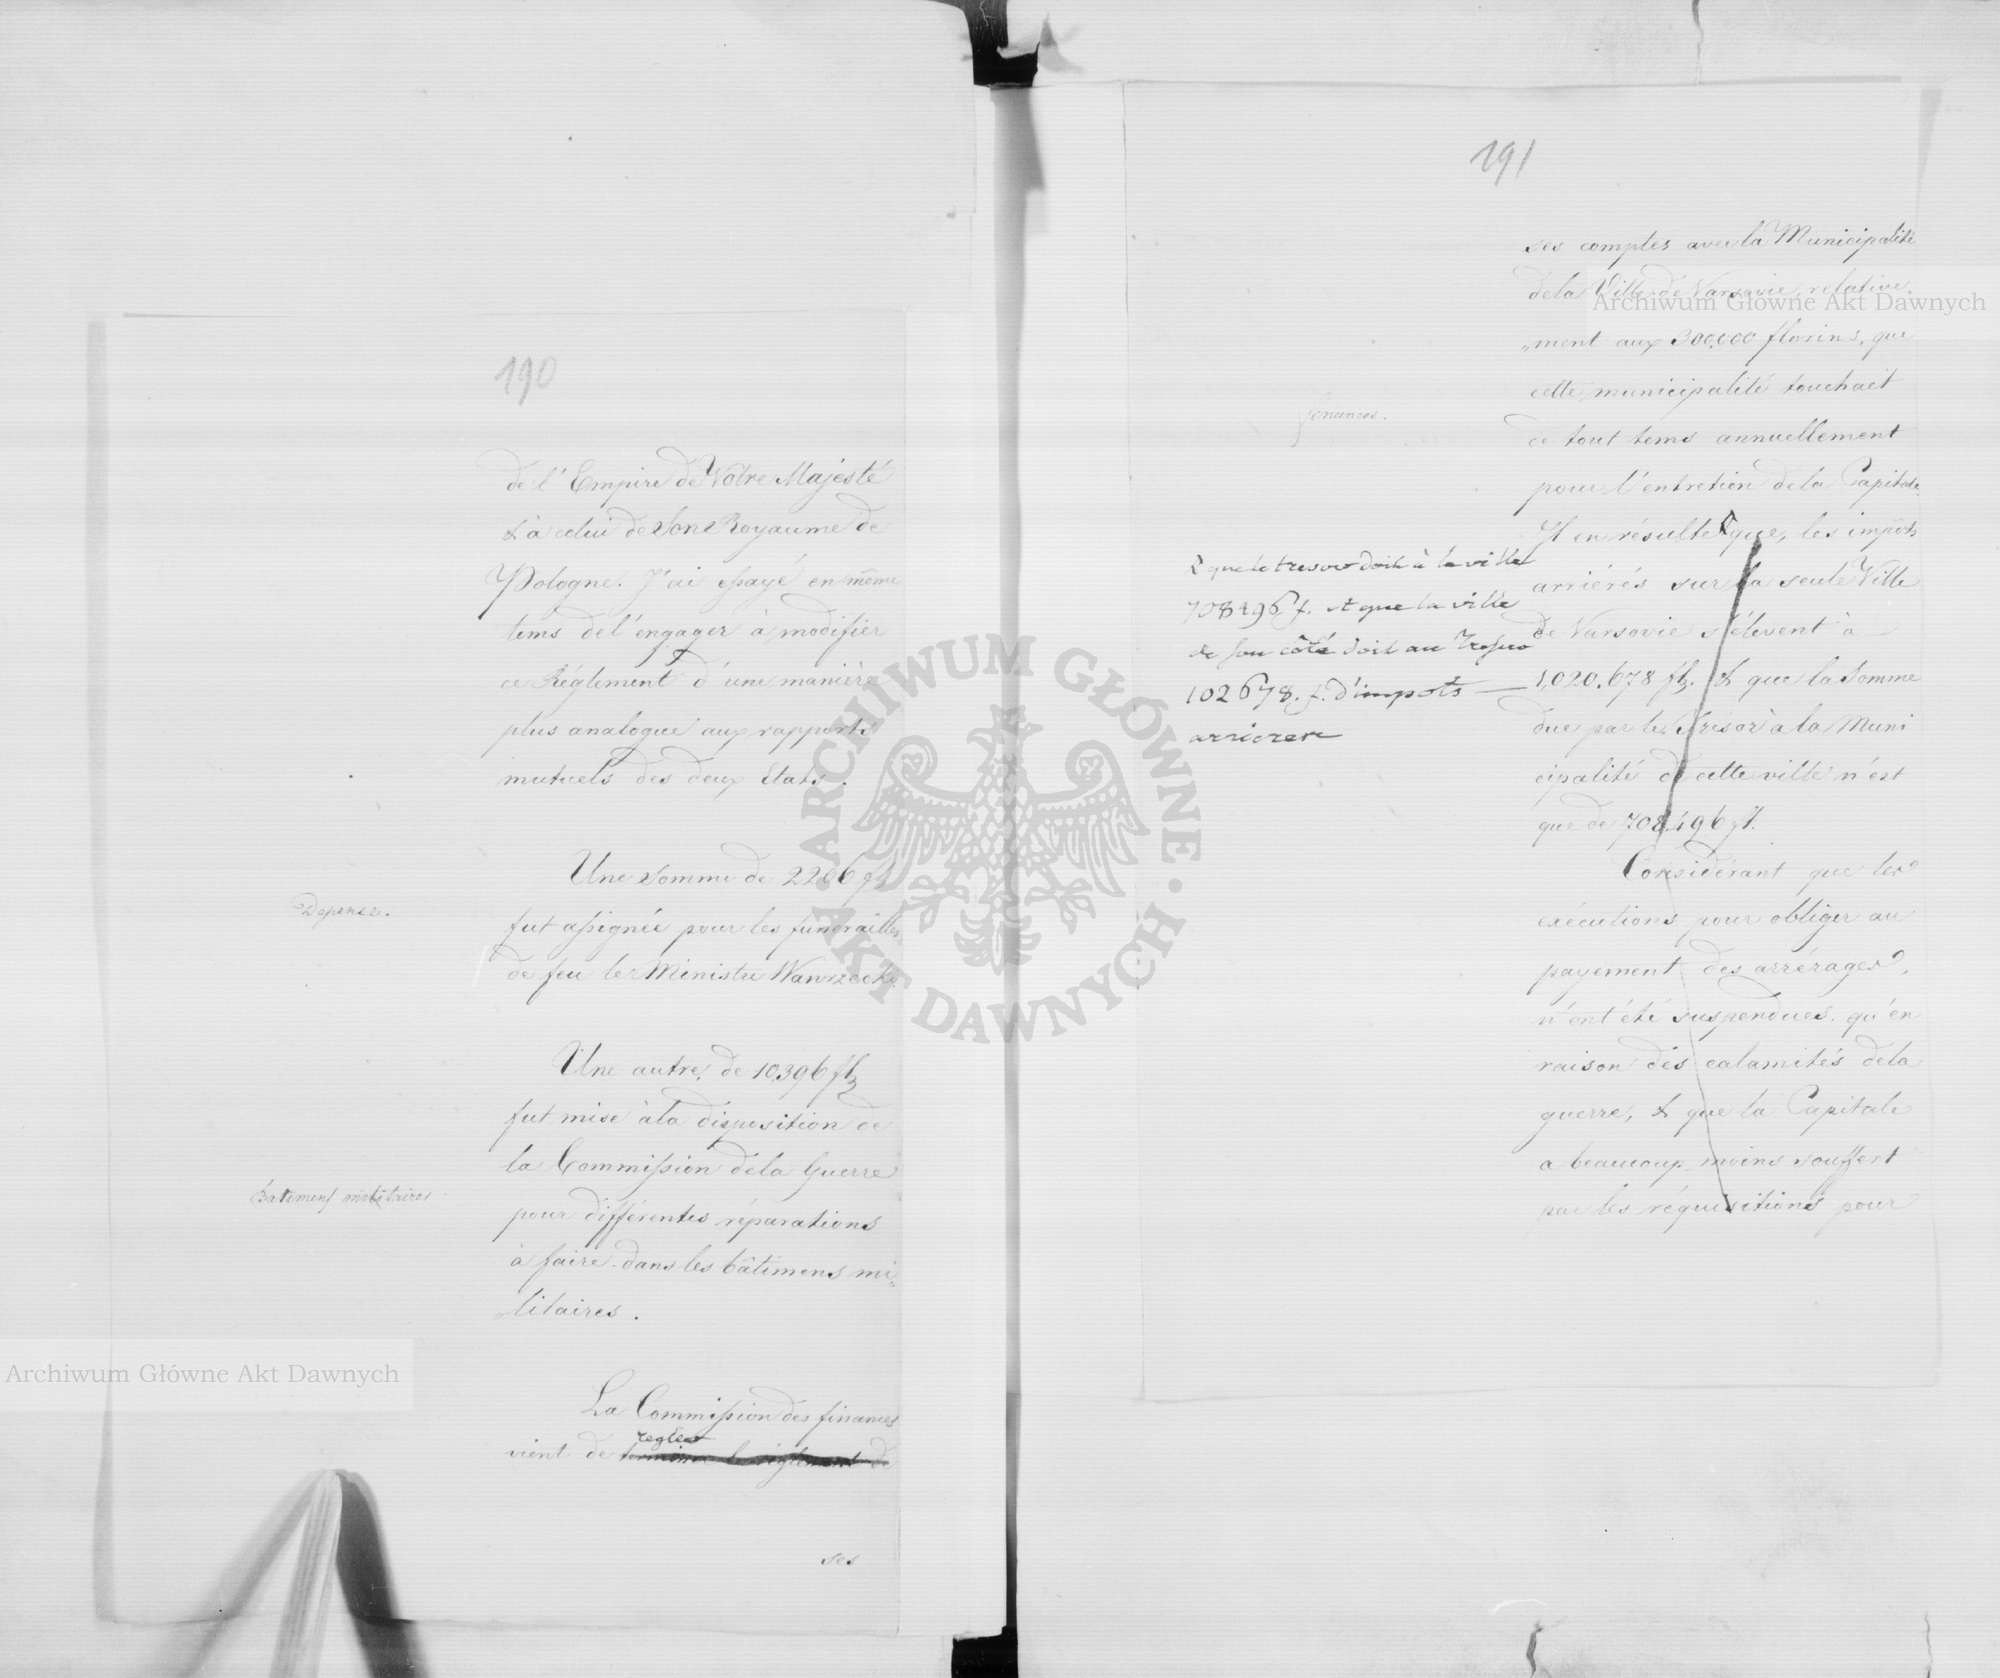 190
de l'Empire de Votre Majesté
& à celui de Son Royaume de
Pologne. J'ai essayé en même
tems de l'engager à modifier
ce Réglement d'une manière
plus analogue aux rapports
mutuels des deux Etats.
Depense.
Une somme de 2206 fl
fut assignée pour les funérailles
de feu le Ministre Wawrzecki
Une autre, de 10,396 fl
fut mise à la disposition de
la Commission de la Guerre
Batimens militaires
pour différentes réparations
à faire dans les bâtimens mi„
„litaires.
La Commission des finances
regler
vient de terminer le réglement de
ses
191
ses comptes avec la Municipalité
de la Ville de Varsovie, relative„
„ment aux 300,000 florins, que
cette municipalité touchait
finances.
de tout tems annuellement
pour l'entretien de la Capitale.
Il en résulte que, les impôts
arriérés sur la seule Ville
de Varsovie s'élevent à
1,020,678 fl. & que la Somme
due par le Trésor à la Muni
cipalité de cette ville n'est
que de 708,496 fl.
que le tresor doit à la ville
708496 f. et que la ville
de son côté doit au Tresor
102678. f. d'impots
arrierer
Considérant que les
exécutions pour obliger au
payement des arrérages,
n'ont été suspendues qu'en
raison des calamités de la
guerre, & que la Capitale
a beaucoup moins souffert
par les réquisitions pour
Archiwum Główne Akt Dawnych
Archiwum Główne Akt Dawnych
ARCHIWUM GŁÓWNE AKT DAWNYCH